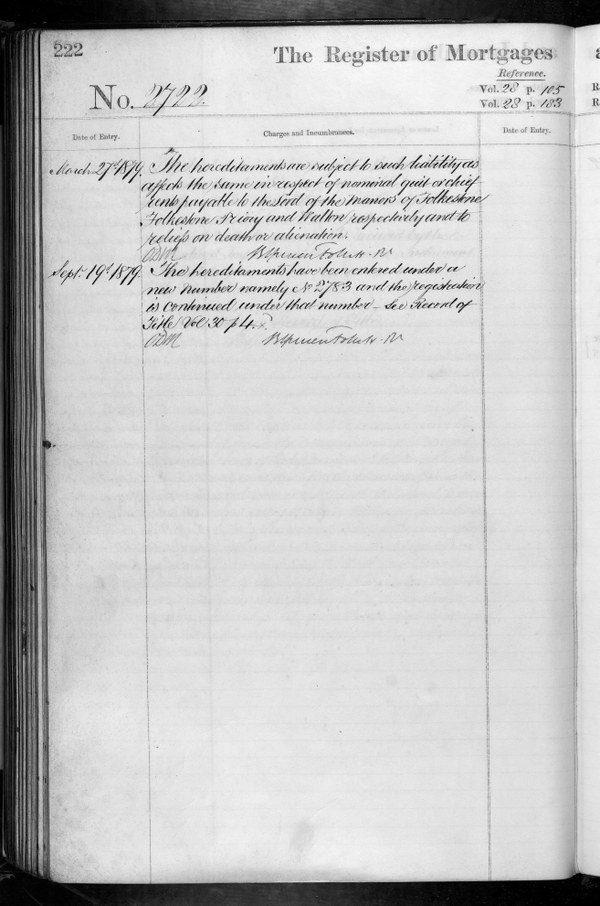 222
The Register of Mortgages
Reference.
Vol. 28 p. 105
No. 2722.
Vol. 28 p. 183
Date of Entry.
Charges and Incumbrances.
Date of Entry.
March 27th 1879. The hereditaments are subject to such liability as
affects the same in respect of nominal quit or chief
rents payable to the Lord of the manors of Folkestone
Folkestone Priory and Walton respectively and to
reliefs on death or alienation.
Sept. 19th 1879. The hereditaments have been entered under a
new number namely No 2783 and the registration
is continued under that number – See Record of
Title Vol 30 p 4.